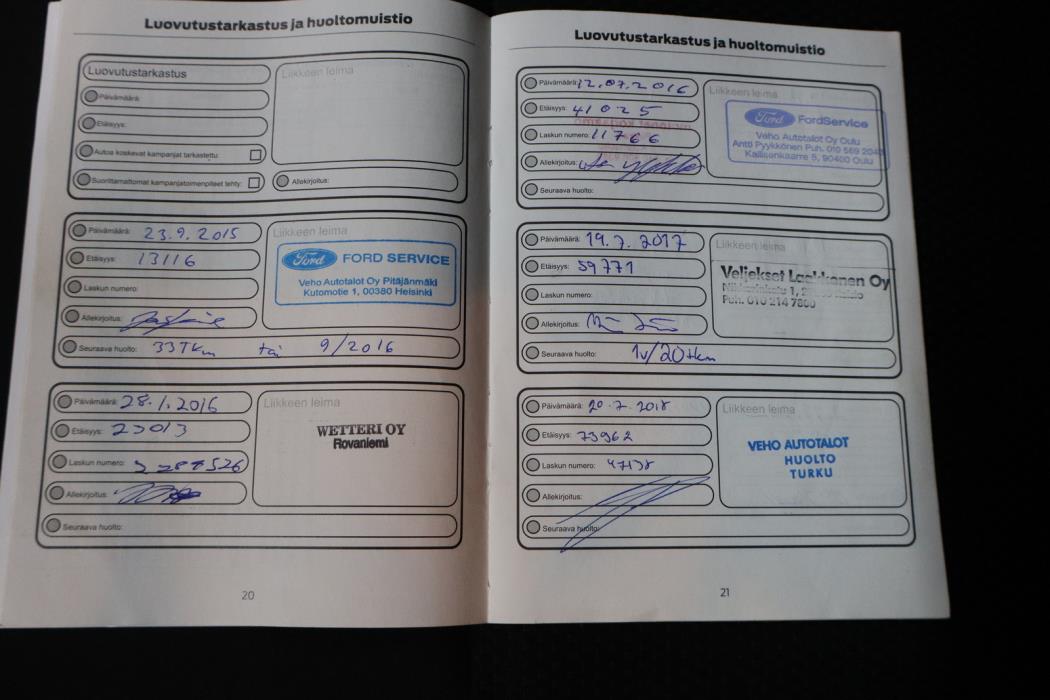 Luovutustarkastus ja huoltomuistio
Luovutustarkastus
Liikkeen leima
Päivämäärä:
Etäisyys:
Autoa koskevat kampanjat tarkastettu:
Suorittamattomat kampanjatoimenpiteet tehty:
Allekirjoitus:
Päivämäärä: 23.9.2015
Etäisyys: 13116
Laskun numero:
Allekirjoitus:
Seuraava huolto: 33Tkm tai 9/2016
Liikkeen leima
Ford FORD SERVICE
Veho Autotalot Oy Pitäjänmäki
Kutomotie 1, 00380 Helsinki
Päivämäärä: 28.1.2016
Etäisyys: 23013
Laskun numero:
Allekirjoitus:
Seuraava huolto:
Liikkeen leima
WETTERI OY
Rovaniemi
20
Luovutustarkastus ja huoltomuistio
Päivämäärä: 12.07.2016
Etäisyys: 41025
Laskun numero: 11766
Allekirjoitus:
Seuraava huolto:
Liikkeen leima
Ford FordService
Veho Autotalot Oy Oulu
Antti Pyykkönen Puh. 010 569
Kallisenkaarre 5, 90400 Oulu
Päivämäärä: 19.7.2017
Etäisyys: 59771
Laskun numero:
Allekirjoitus:
Seuraava huolto: 1v/20tkm
Liikkeen leima
Veljekset Laakkonen Oy
Puh. 010 214 7800
Päivämäärä: 20.7.2018
Etäisyys: 73962
Laskun numero: 47138
Allekirjoitus:
Seuraava huolto:
Liikkeen leima
VEHO AUTOTALOT
HUOLTO
TURKU
21